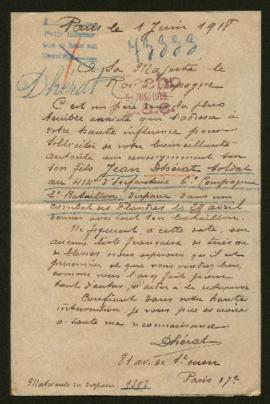 Paris le 1 Juin 1918
73333
A Sa Majesté le
Roi d'Espagne
Dhérat
C'est un père dans la plus
terrible anxiété qui s'adresse à
votre haute influence pour
solliciter de votre bienveillante
autorité un renseignement sur
son fils Jean Dhérat soldat
au 414e d'Infanterie 6e Compagnie
2e Bataillon, disparu dans un
combat des Flandres le avril
dernier avec tout son bataillon.
Ne figurant à cette date, sur
aucune liste française de tués ou
de blessés nous espérons qu'il est
prisonnier et que vous voudrez bien
comme vous l'avez fait pour
tant d'autres, m'aider à le retrouver
Confiant dans votre haute
intervention, je vous prie de croire
à toute ma reconnaissance
Dhérat
81 av. de St Ouen
Paris 17e
Matricule du disparu: